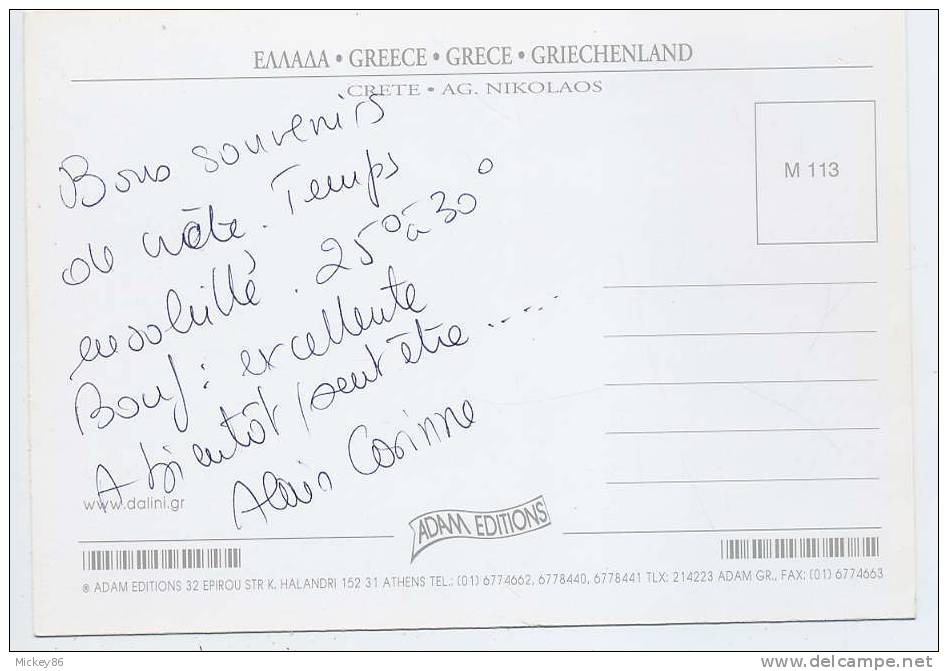 ΕΛΛΑΔΑ • GREECE • GRECE • GRIECHENLAND
CRETE • AG. NIKOLAOS
M 113
Bons souvenirs
de Crète. Temps
ensoleillé. 25° à 30°
Bouf : excellente
A bientôt peut être .....
Alain Corinne
www.dalini.gr
ADAM EDITIONS
® ADAM EDITIONS 32 EPIROU STR K. HALANDRI 152 31 ATHENS TEL.: (01) 6774662, 6778440, 6778441 TLX: 214223 ADAM GR., FAX: (01) 6774663
Mickey86
www.delcampe.net